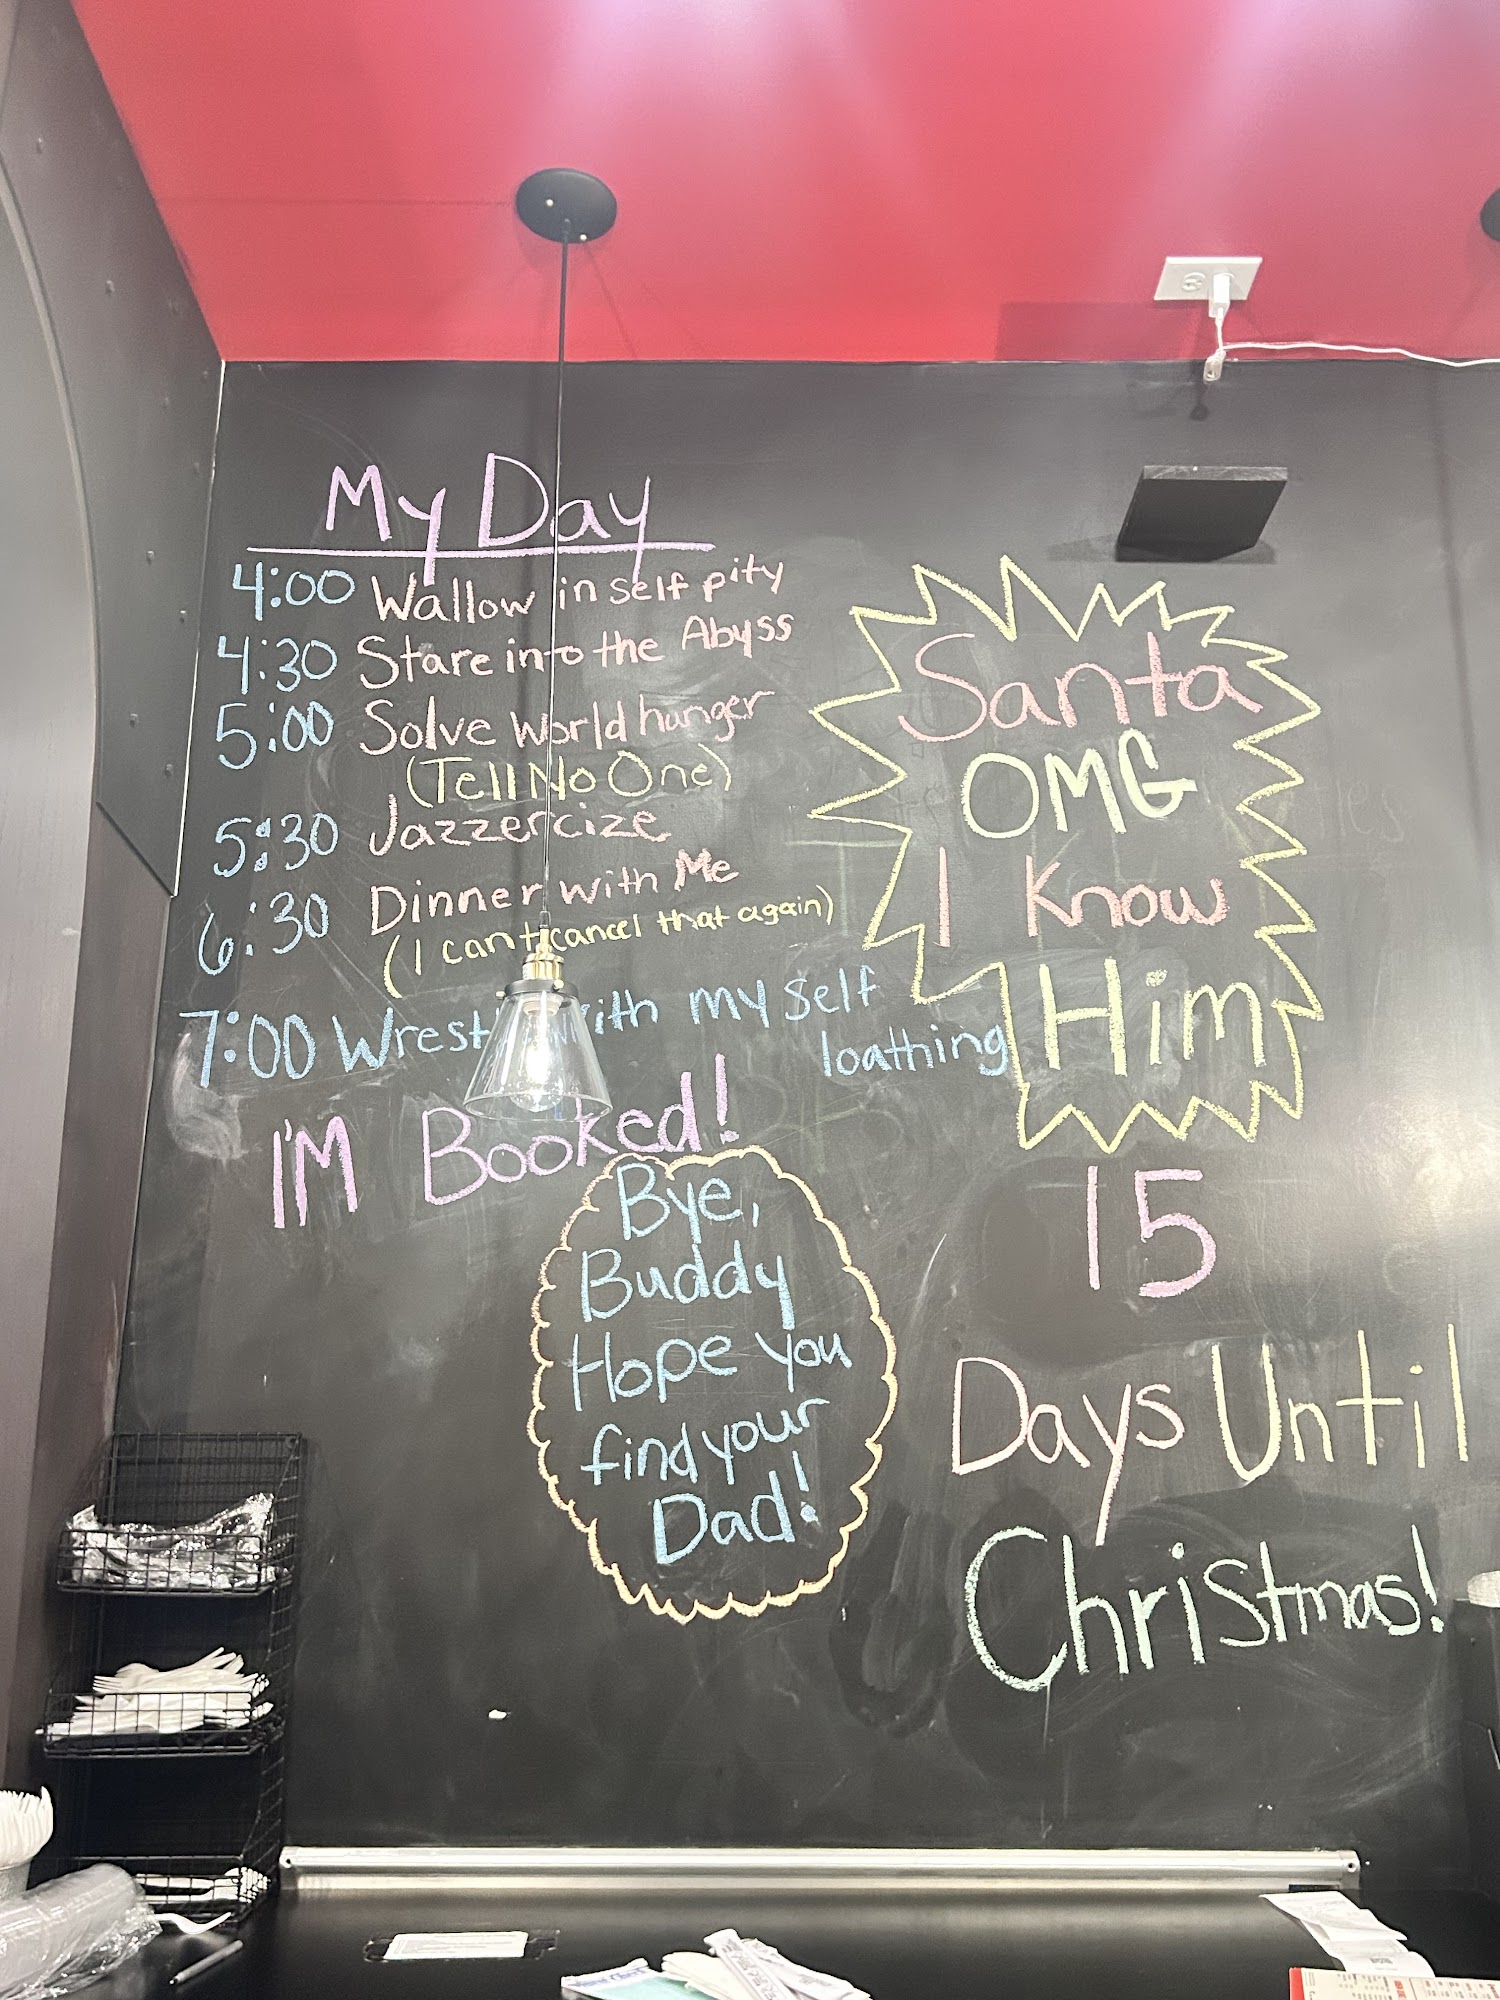 My Day
4:00 Wallow in self pity
4:30 Stare into the Abyss
5:00 Solve world hunger
(Tell No One)
5:30 Jazzercize
6:30 Dinner with Me
(I can't cancel that again)
7:00 Wrest with my self
loathing
I'M Booked!
Bye,
Buddy
Hope you
find your
Dad!
Santa
OMG
I Know
Him
15
Days Until
Christmas!